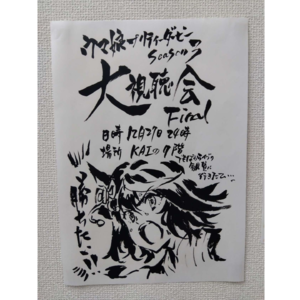 ウマ娘プリティーダービー
Season3
大視聴会
Final
日時 12月27日 24時
場所 KAIの7階
勝ちたい…!